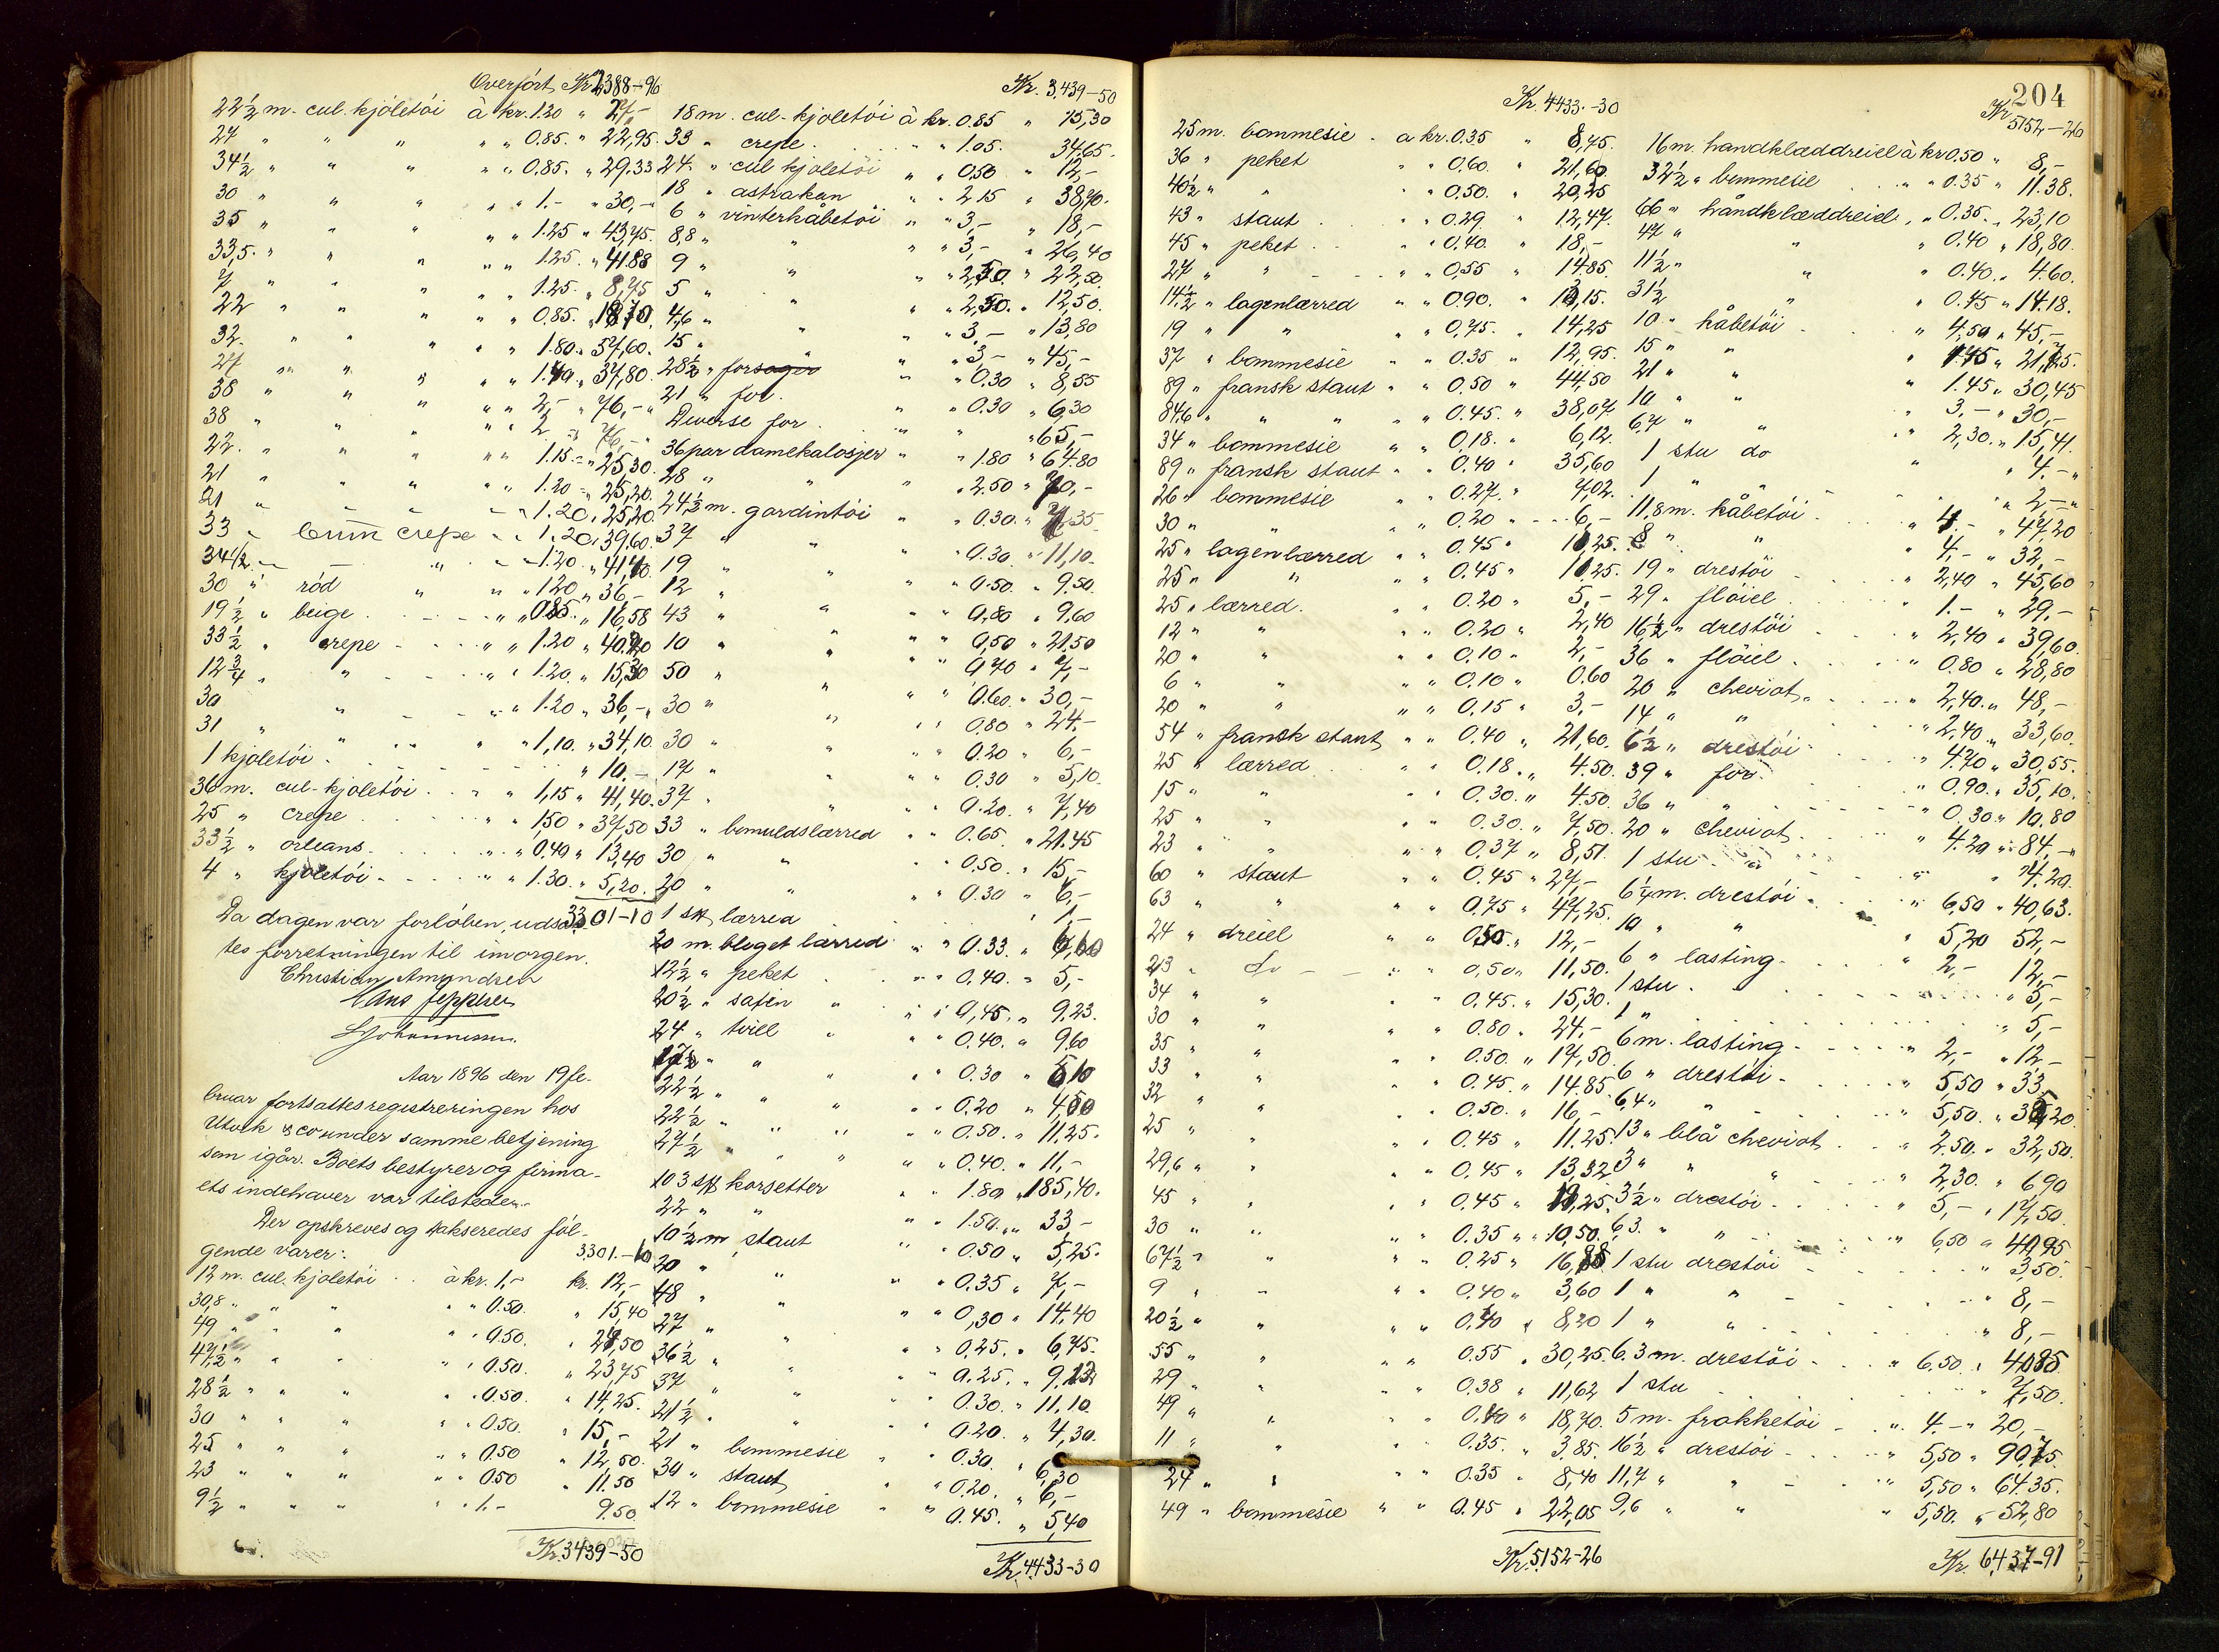 Overført Kr. 2388-96
22½ m. cul. kjoletöi à kr. 1.20 " 27,-
24 " " " " " 0.85. " 22,95.
34½ " " " " " 0.85. " 29.33
30 " " " " " 1.- " 30,-
35 " " " " " 1.25 " 43,75.
33,5. " " " " " 1.25. " 41.88
7 " " " " " 1.25. " 8,75
22 " " " " " 0.85. " 18,70.
32. " " " " " 1.80. " 57,60.
27 " " " " " 1.40. " 37,80.
38 " " " " " 2,- " 76,-
38 " " " " " 2 - " 76,-
22. " " " " " 1.15.- " 25,30.
21 " " " " " 1.20 - " 25,20.
21 " " " " " 1.20 " 25,20.
33 " crepe " " 1.20 " 39,60.
34½ " " " " 1.20 " 41,40.
30 " röd " " " 1.20 " 36,-
19½ " beige " " 0.85. " 16,58
33½ " crepe " " 1.20 " 40.20
12¾ " " " " 1.20. " 15,30
30 " " " " 1.20 " 36,-
31 " " " " 1,10. " 34,10.
1 kjoletöi " 10.-
36 m. cul-kjoletöi " " 1,15 " 41,40.
25 " crepe " " 1,50 " 37,50
33½ " orleans " " 0,40 " 13,40
4 " kjoletöi " " 1.30. " 5,20.
3301-10
Da dagen var forløben, udsat-
tes forretningen til imorgen.
Christian Amundsen
Hans Jeppesen
Johannessen
Aar 1896 den 19 fe-
bruar fortsattes registreringen hos
Utvik & co under samme betjening
som igår. Boets bestyrer og firma-
ets indehaver var tilstede.
Der opskreves og takseredes föl-
gende varer: 3301.-10
12 m. cul. kjoletöi à kr. 1,- kr. 12,-
30,8 " " " " " 0.50. " 15,40
49 " " " " " 0.50. " 24,50
47,½ " " " " " 0.50. " 23,75
28½ " " " " " 0.50. " 14,25.
30 " " " " " 0.50. " 15,-
25 " " " " " 0.50 " 12,50.
23 " " " " " 0.50 " 11.50
9½ " " " " " 1.- 9.50
Kr. 3439-50
Kr. 3,439-50
18 m. cul-kjoletöi à kr. 0.85 " 15,30
33 " crepe " 1.05. 34,65.
24. " cul kjoletöi " " 0,50 " 12,-
18 " astrakan " " 2.15 " 38,70.
6 " vinterkåbetöi " " 3,- " 18,-
8,8 " " " " 3,- " 26,40
9 " " " 2,50. " 22,50.
5 " " " " 2,50. " 12,50.
4,6 " " " " 3,- " 13,80
15 " " " " 3,- " 45,-
28½ " forsager " " 0.30 " 8,55
21 " for. " " 0.30 " 6,30
Diverse for " " 65,-
36 par damekalosjer " " 1.80 " 64.80
28 " " " " 2.50 " 70,-
24½ m. gardintöi " " 0.30. " 7,35
37 " " " 0.30 " 11,10.
19 " " " " 0.50. " 9.50.
12 " " " " 0,80 " 9.60
43 " " " " 0,50 " 21,50
10 " " " " 0.70 " 7,-
50 " " " " 0.60. " 30,-
30 " " " " 0.80 " 24,-
30 " " " " 0.20 " 6,-
17 " " " " 0.30 " 5,10.
37 " " " " 0.20. " 7,40
33 " bomuldslærred " " 0.65. " 21.45
30 " " " 0.50. " 15,-
20 " " " 0.30 " 6,-
1 stk lærred " 1,-
20 m. bleget lærred " " 0.33. " 6,60
12½ " peket " " 0.40. " 5,-
20½ " saten " " " 0,45. " 9.23.
24 " tvill " " " 0.40. " 9.60
17½ " " " " 0.30 " 5,10
22½ " " " " " 0.20 " 4,50
22½ " " " " " 0.50. " 11.25.
27½ " " " " " 0.40. " 11,-
103 stk korsetter " " 1.80 " 185,40.
22 " " " " 1.50. " 33,-
10½ m staut " " 0.50 " 5,25.
20 " " " " 0.35 " 7,-
48 " " " " 0,30 " 14,40
27 " " " " 0.25. " 6,75.
36½ " " " " 0.25. " 9.13
37 " " " " 0.30. " 11,10.
21½ " " " " 0.20. " 4,30.
21 " bommesie " " 0.30. " 6,30
30 " staut " " 0.20. " 6,-
12 " bommesie " " 0.45. " 5,40
Kr. 4433-30
204
Kr. 4433.-30
25 m. bommesie - a kr. 0.35 " 8,75.
36 " peket " " 0,60. " 21,60
40½ " " " " 0.50. " 20,25
43 " staut " " 0.29. " 12,47.
45 " peket " " 0,40. " 18,-
27 " " " " 0,55 " 14,85.
14½ " lagenlærred " " 0.90. " 13,15.
19 " " " " 0,75. " 14,25
37 " bommesie " " 0.35 " 12,95.
89 " fransk staut " " 0.50 " 44,50
84,6 " " " " " 0.45. " 38,07
34 " bommesie " " 0,18. " 6,12.
89 " fransk staut " " 0.40 " 35,60
26 " bommesie " " 0.27. " 7,02.
30 " " " " 0.20 " 6,-
25 " lagenlærred " " 0.45 " 11,25.
25 " " " " 0.45 " 11,25.
25 " lærred. " " 0.20 " 5,-
12 " " " " 0.20 " 2,40
20 " " " " 0,10 " 2,-
6 " " " " 0.10 " 0.60
20 " " " " 0,15 " 3,-
54 " fransk staut " " 0.40 " 21,60.
25 " lærred " " 0.18. " 4.50.
15 " " " " 0.30. " 4.50.
25 " " " " 0.30. " 7,50.
23 " " " " 0.37 " 8,51.
60 " staut " " 0.45 " 27,-
63 " " " " 0.75 " 47,25.
24 " dreiel " " 0.50. " 12,-
23 " do " " 0,50 " 11,50.
34 " " " " 0.45. " 15,30.
30 " " " " 0.80. " 24,-
35 " " " " 0.50. " 17,50.
33 " " " " 0.45. " 14.85.
32 " " " " 0.50. " 16,-
25 " " " " 0.45 " 11.25
29,6 " " " " 0.45 " 13,32
45 " " " " 0.45 " 19,25.
30 " " " " 0.35 " 10,50.
67½ " " " " 0.25 " 16,88
9 " " " " 0.40 " 3,60
20½ " " " " 0.40 " 8,20
55 " " " " 0.55 " 30,25.
29 " " " " 0.38 " 11,62
49 " " " " 0.40 " 18,70.
11 " " " " 0.35. " 3,85.
24 " " " " 0.35 " 8,40
49 " bommesie " " 0.45 " 22,05
Kr. 5152-26
Kr. 5152-26
16 m. handklæddreiel à kr 0.50 " 8,-
32½ " bommesie " " 0.35 " 11.38.
66 " håndklæddreiel " " 0.35. " 23,10
47 " " " 0.40 " 18,80.
11½ " " " 0.40. " 4.60.
31½ " " 0.45 " 14.18.
10 " kåbetöi " 4,50 " 45,-
15 " " " 1.45 " 21,75.
21 " " " 1.45 " 30,45
10 " " " 3,- " 30,-
6,7 " " " 2,30. " 15,41.
1 stu do " 4,-
1 " " " 2,-
11,8 m. kåbetöi " 4.- " 47,20
8 " " " 4,- " 32,-
19 " drestöi " 2,40 " 45,60
29 " flöiel " 1.- " 29,-
16½ " drestöi " 2,40 " 39,60.
36 " flöiel " 0.80 " 28,80
20 " cheviot " 2,40. " 48,-
14 " " " 2,40 " 33,60.
6½ " drestöi " 4.70 " 30,55.
39 " for " 0.90. " 35,10.
36 " " " 0,30. " 10.80
20 " cheviot " 4.20 " 84,-
1 stu " " 4.20.
6¼ m. drestöi " 6,50 " 40,63.
10 " " " 5,20 52,-
6 " lasting " 2,- 12,-
1 stu " 5,-
1 " " 5,-
6 m. lasting " 2,- " 12,-
6 " drestöi " 5,50 " 33,
6,4 " " " 5,50. " 35,20
13 " blå cheviot " 2.50. " 32,50.
3 " " " " 2,30. " 6.90
3½ " drestöi " 5,- " 17,50.
6,3. " " " 6,50 " 40,95
1 stu drestöi " 3,50.
1 " " " 8,-
1 " " " 8,-
6.3 m. drestöi " 6.50. " 40.95
1 stu " 7,50.
5 m. frakketöi " 4.- " 20,-
16½ " drestöi " 5,50 " 90,75.
11,7 " " " 5,50 " 64.35.
9,6 " " " 5,50. " 52,80
Kr. 6437-91